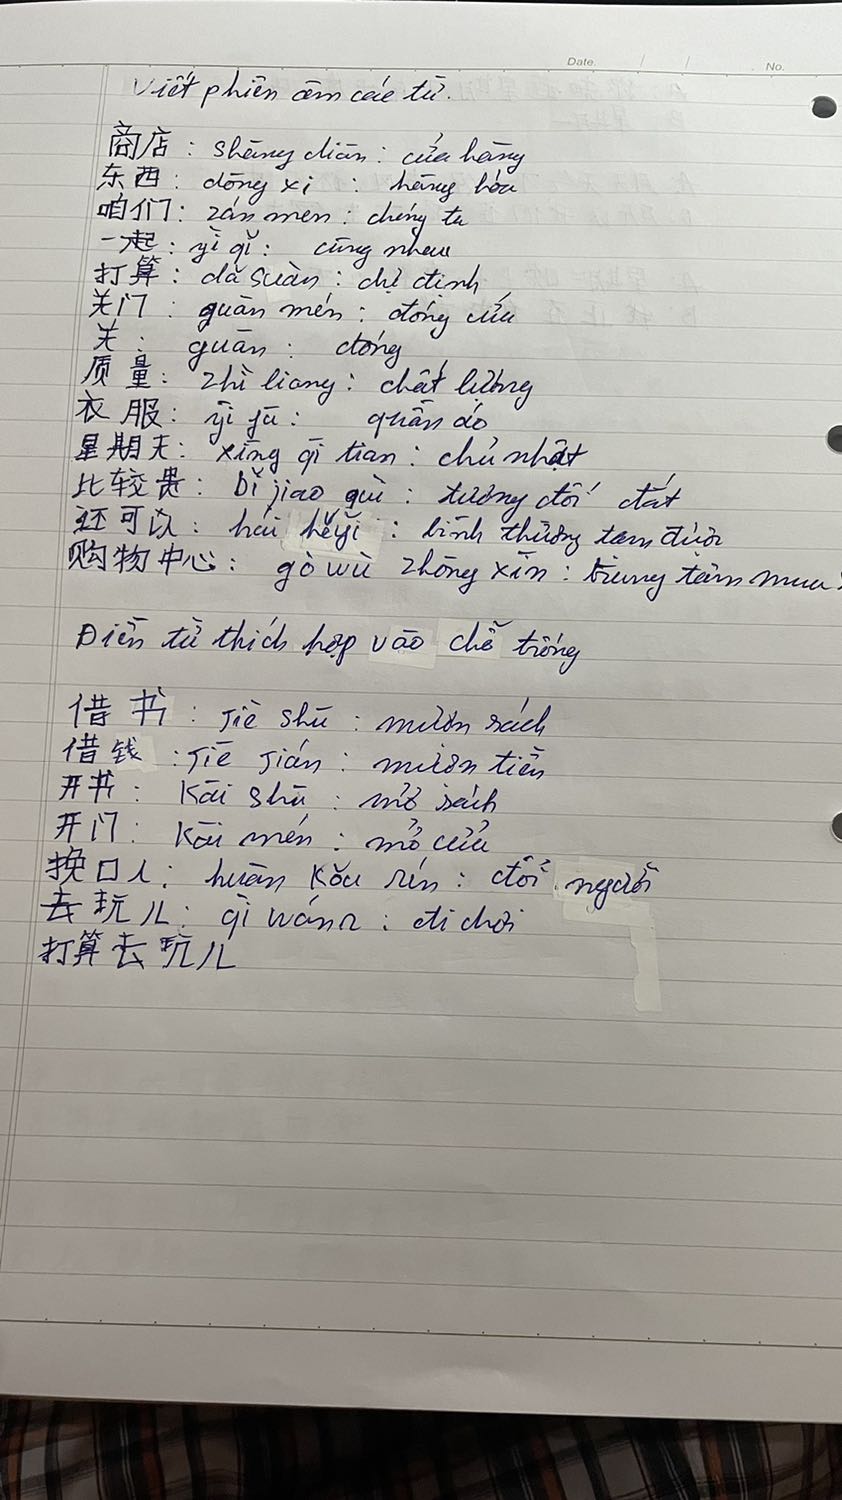 Date. / / No.
Viết phiên âm các từ.
商店 : shāng diān : cửa hàng
东西 : dōng xi : hàng hóa
咱们 : zán men : chúng ta
一起 : yì qǐ : cùng nhau
打算 : dǎ suàn : dự định
关门 : guān mén : đóng cửa
关 : guān : đóng
质量 : zhì liang : chất lượng
衣服 : yī fū : quần áo
星期天 : xīng qī tian : chủ nhật
比较贵 : bǐ jiao guì : tương đối đắt
还可以 : hái kěyǐ : bình thường tạm được
购物中心 : gò wù zhōng xīn : trung tâm mua
Điền từ thích hợp vào chỗ trống
借书 : Jiè shū : mượn sách
借钱 : Jiē Jián : mượn tiền
开书 : Kāi shū : mở sách
开门 : Kāi mén : mở cửa
换口人 : huān kǒu rén : đổi người
去玩儿 : qì wánr : đi chơi
打算去玩儿